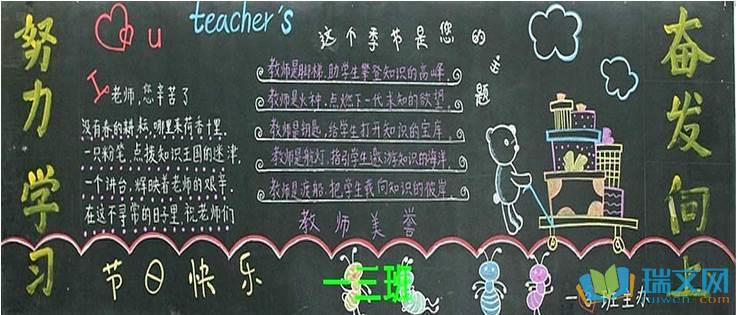 努力学习
u teacher's
这个季节是您的主题
老师,您辛苦了
没有春的耕耘,哪里来荷香十里.
一只粉笔,点拨知识王国的迷津,
一个讲台,辉映着老师的艰辛.
在这不寻常的日子里 祝老师们
节日快乐
教师是脚梯,助学生攀登知识的高峰.
教师是火种,点燃下一代求知的欲望.
教师是钥匙,给学生打开知识的宝库.
教师是航灯,指引学生遨游知识的海洋.
教师是渡船,把学生载向知识的彼岸.
教师美誉
奋发向上
一三班
班主办
瑞文网
ruiwen.com